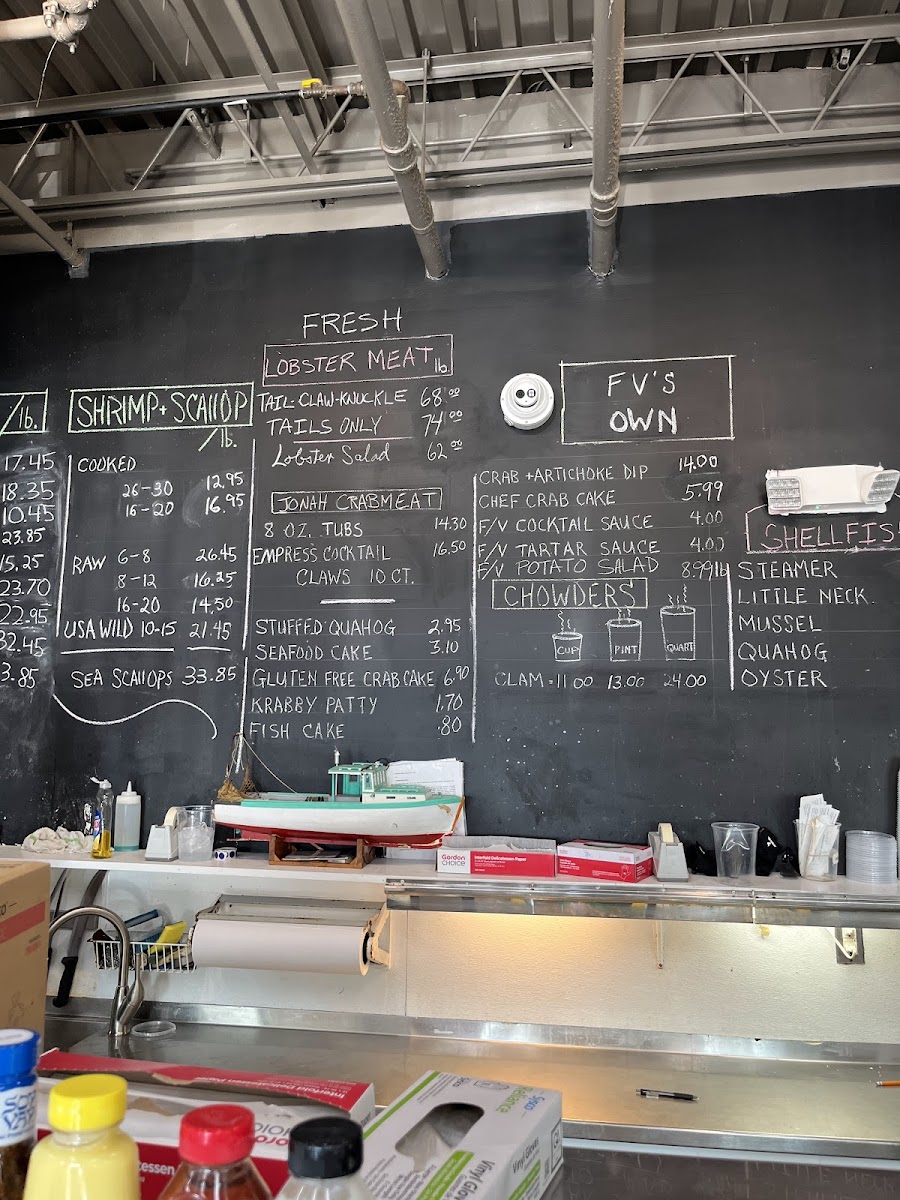 /lb.
17.45
18.35
10.45
23.85
15.25
23.70
22.95
32.45
3.85
SHRIMP + SCALLOP
/lb.
COOKED
26-30 12.95
16-20 16.95
RAW 6-8 26.45
8-12 16.25
16-20 14.50
USA WILD 10-15 21.45
SEA SCALLOPS 33.85
FRESH
LOBSTER MEAT lb.
TAIL-CLAW-KNUCKLE 68.00
TAILS ONLY 74.00
Lobster Salad 62.00
JONAH CRABMEAT
8 OZ. TUBS 14.30
EMPRESS COCKTAIL 16.50
CLAWS 10 CT.
STUFFED QUAHOG 2.95
SEAFOOD CAKE 3.10
GLUTEN FREE CRAB CAKE 6.90
KRABBY PATTY 1.70
FISH CAKE .80
FV'S
OWN
CRAB + ARTICHOKE DIP 14.00
CHEF CRAB CAKE 5.99
F/V COCKTAIL SAUCE 4.00
F/V TARTAR SAUCE 4.00
F/V POTATO SALAD 8.99 lb
CHOWDERS
CUP PINT QUART
CLAM = 11.00 13.00 24.00
SHELLFIS
STEAMER
LITTLE NECK
MUSSEL
QUAHOG
OYSTER
Gordon
CHOICE
Interfolded Delicatessen Paper
Interfold Delicatessen Paper
CHOICE
tessen
alliance
Vinyl Glov
Vinyl Gloves